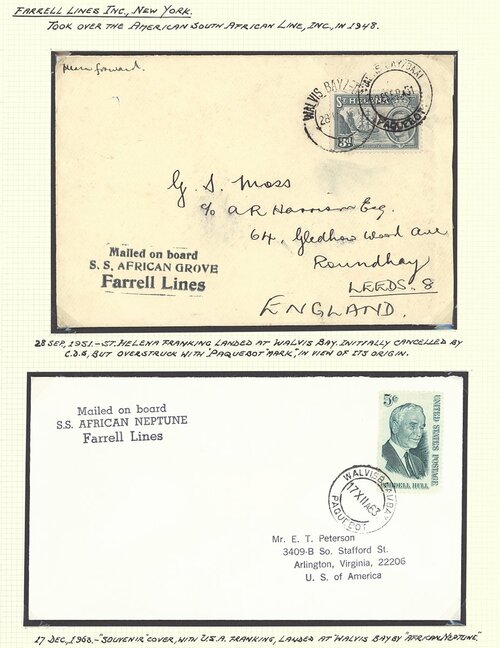 FARRELL LINES INC., NEW YORK.
TOOK OVER THE AMERICAN SOUTH AFRICAN LINE, INC., IN 1948.
Please forward.
WALVIS BAY/
28
WALVIS BAY/BAAI
PAQUEBOT
ST HELENA
8d
G. S. Moss
c/o A R Harrison Esq.
64, Gledhow Wood Ave
Roundhay
LEEDS. 8
ENGLAND.
Mailed on board
S. S. AFRICAN GROVE
Farrell Lines
28 SEP, 1951. - ST. HELENA FRANKING LANDED AT WALVIS BAY. INITIALLY CANCELLED BY
C.D.S, BUT OVERSTRUCK WITH "PAQUEBOT" MARK, IN VIEW OF ITS ORIGIN.
Mailed on board
S.S. AFRICAN NEPTUNE
Farrell Lines
5¢
UNITED STATES POSTAGE
CORDELL HULL
WALVISBAAI/BAY
17 XII 63
PAQUEBOT
Mr. E. T. Peterson
3409-B So. Stafford St.
Arlington, Virginia, 22206
U. S. of America
17 DEC, 1963. - "SOUVENIR" COVER, WITH U.S.A. FRANKING, LANDED AT WALVIS BAY BY "AFRICAN NEPTUNE"